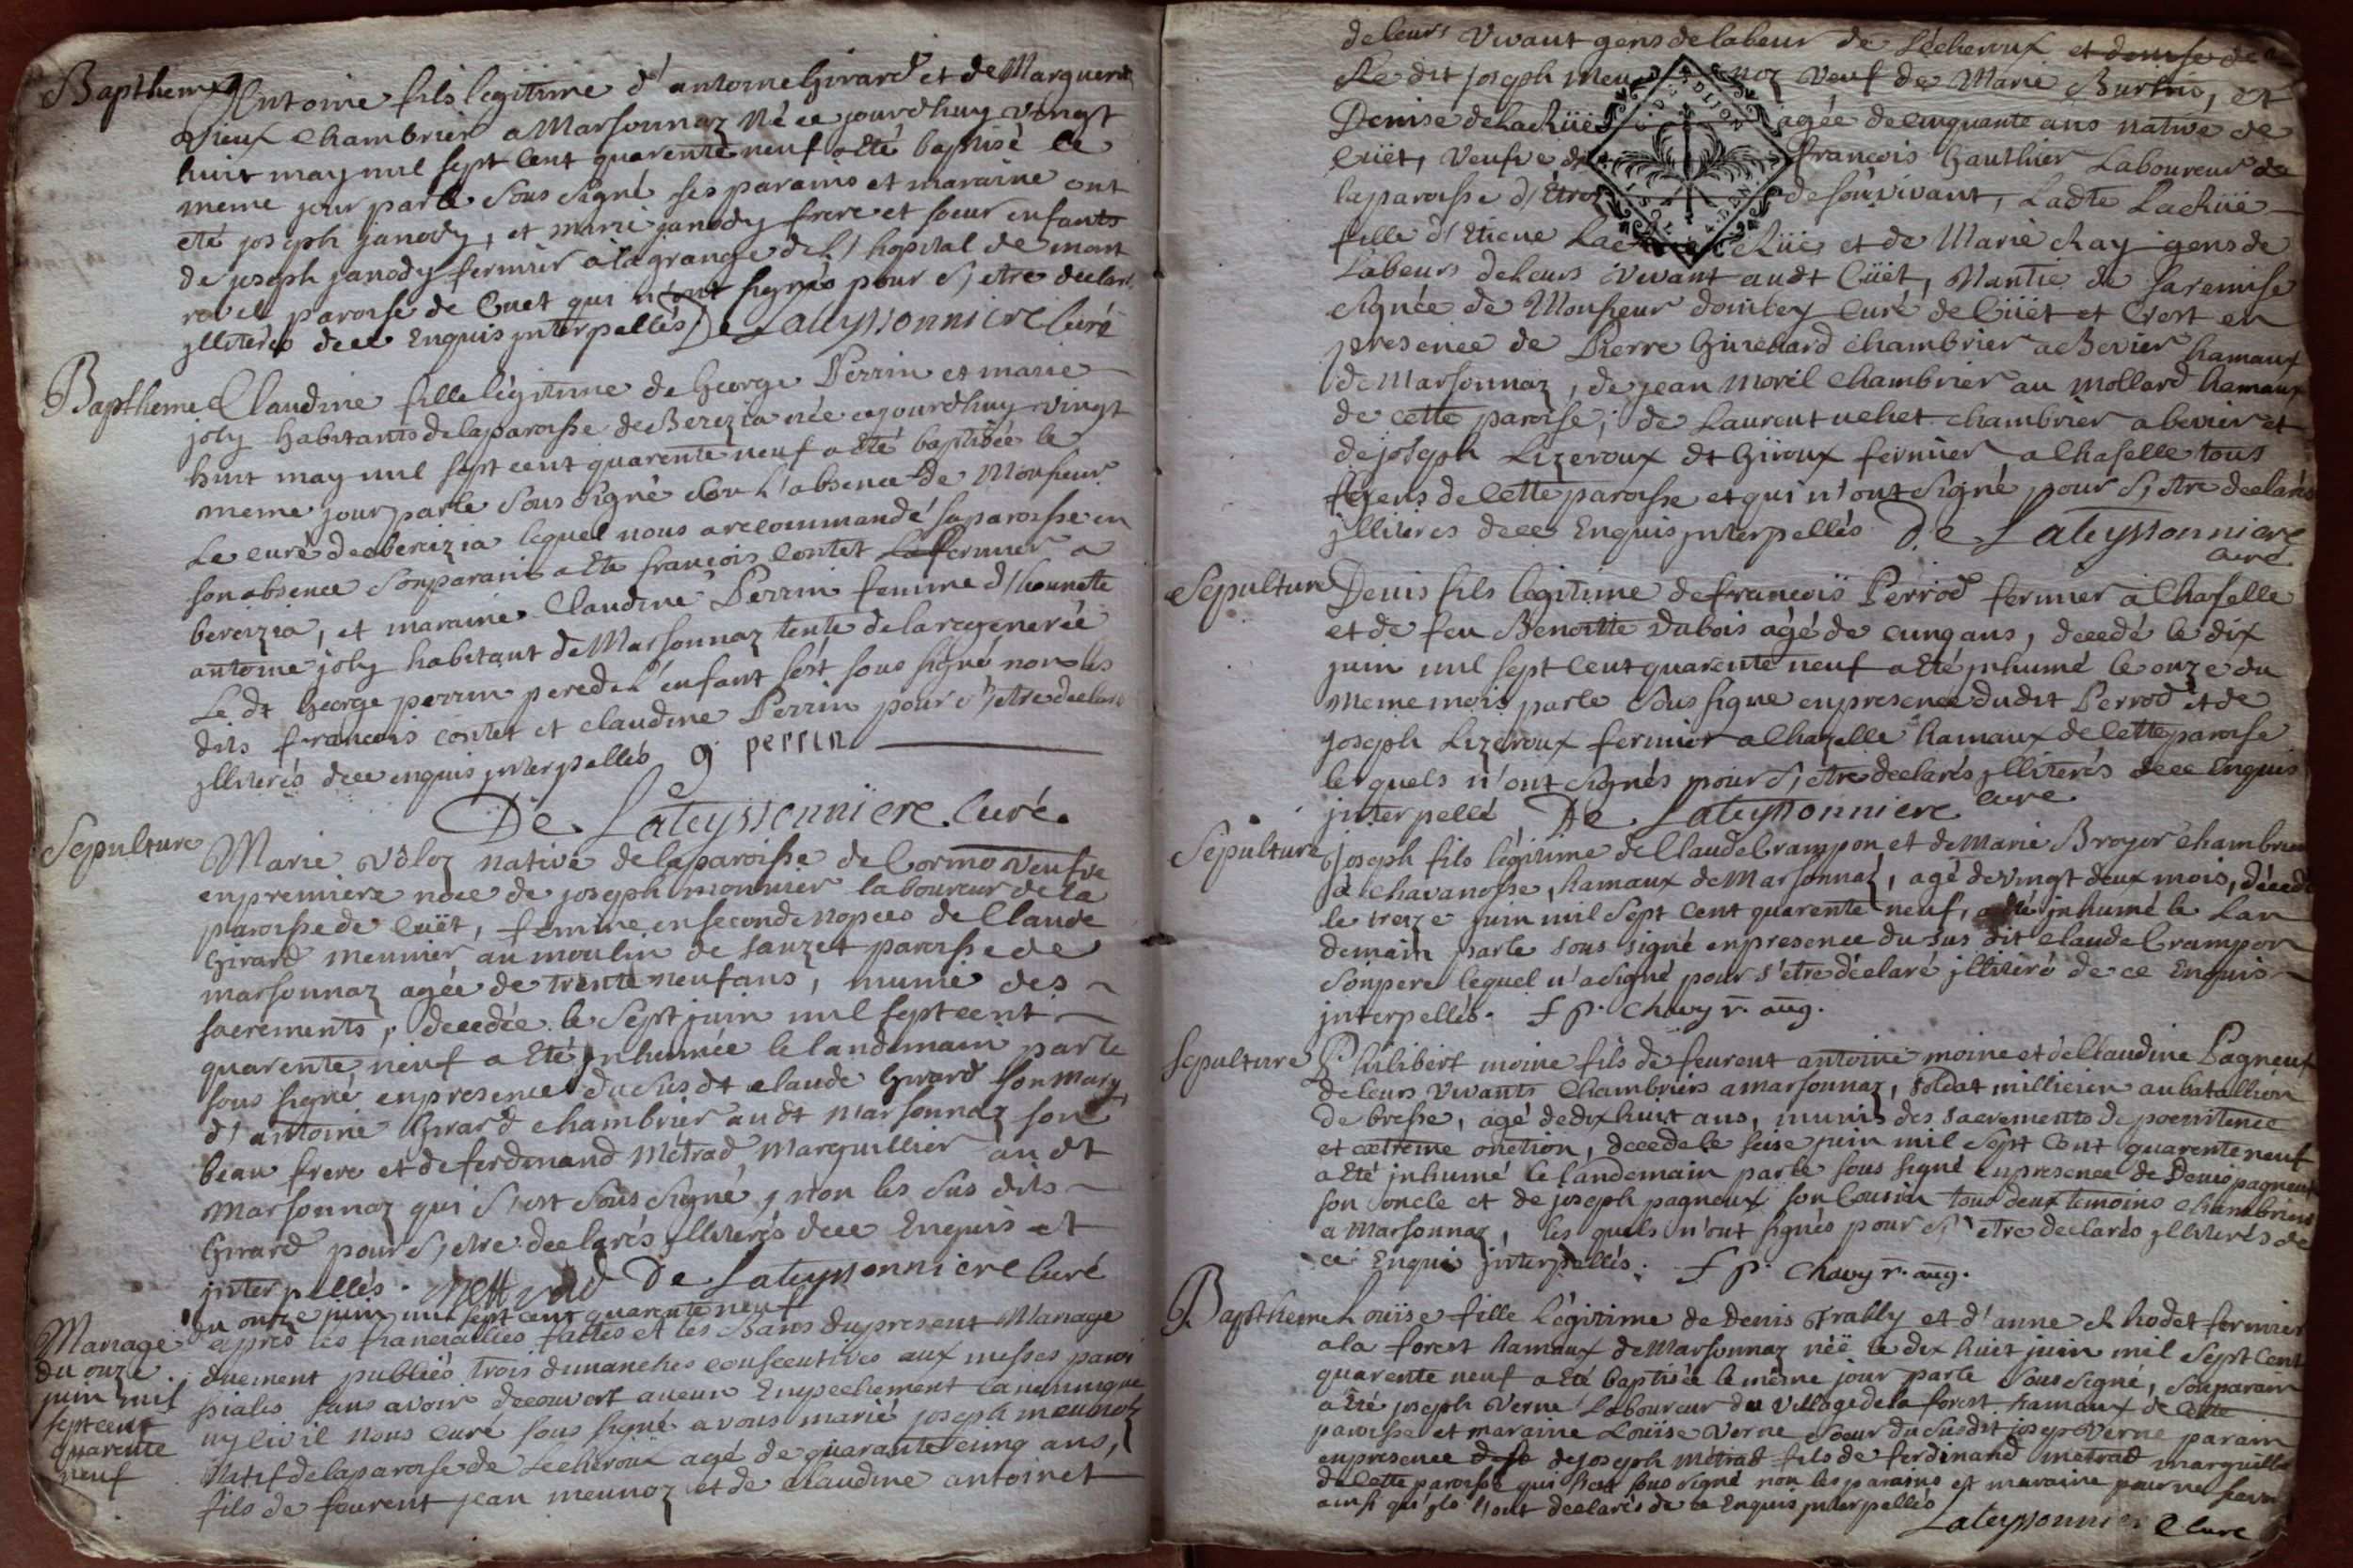 Baptheme Antoine fils legitime d'antoine Girard et de Marguerite
vieux Chambrier a Marsonnaz Né ce jourdhuy vingt
huit may mil sept cent quarente neuf a Eté baptisé le
meme jour par le Sous Signé ses parains et maraine ont
eté joseph janody, et marie janody frere et soeur enfants
de joseph janody fermier a la grange de l'hopital de mont
revel paroisse de Cuet qui n'ont signés pour s'etre declarés
jlliterés dece Enquis jnterpellés De Lateyssonniere Curé
Baptheme Claudine fille légitime de George Perrin et marie
joly habitants de la paroisse de Berezia née cejourdhuy vingt
huit may mil sept cent quarente neuf a eté baptisée le
meme jour par le Sous Signé l'absence de Monsieur
Le curé de bereizia lequel nous a recommandé sa paroisse en
son absence Son parain a Eté francois Contet fermier a
bereizia, et maraine Claudine Perrin femme d'honnete
antoine joly habitant de Marsonnaz tente de la regenerée
Le dt George perrin pere de l'enfant s'est sous signé non les
dits francois contet et claudine Perrin pour s'etre declarés
jlliterés dece enquis jnterpellés g perrin
De Lateyssonniere Curé.
Sepulture Marie Voloz native de la paroisse de Cormo Veufve
en premiere noce de joseph monnier laboureur de la
paroisse de Cuët, femme en seconde nopces de Claude
Girard meunier au moulin de sauzet paroisse de
marsonnaz agée de trente neuf ans, munie des
sacrements, decedée le Sept juin mil sept cent
quarente neuf a Eté jnhumée le landemain par le
sous signé en presence du Susdt claude Girard son mary
d'antoine Girard chambrier audt marsonnaz son
beau frere et de ferdinand Métrad Marguillier audt
Marsonnaz qui s'est Sous Signé, non les Sus dits
Girard pour s'etre declarés jlliterés dece Enquis et
jnterpellés. Mettrad De Lateyssonniere Curé
Du onze juin mil sept cent quarente neuf
Mariage du onze juin mil sept cent quarente neuf
apres les fiancailles faittes et les Bans du present Mariage
duement publiés trois dimanches consecutives aux messes paroi
ssiales sans avoir decouvert aucun Empechement canonnique
ny civil Nous Curé sous signé avons marié joseph meunoz
Natif de la paroisse de Lecheroux agé de quarante cinq ans,
fils de feurent jean meunoz et de claudine antoinet
de leurs Vivant gens de labeur de Lécheroux et denise de
Le dit joseph Meunoz Veuf de Marie Burtin, et
Denise de LaChüe agée de cinquante ans native de
Cuët, Veufve de francois Gauthier Laboureur de
la paroisse d'Etrez de son vivant, Ladte Lachüe
fille d'Etiene Lachüe et de Marie chay gens de
Labeur de leurs Vivant audt Cuët, Nantie de sa remise
signée de Monsieur dombey curé de Cuët et C'est en
presence de Pierre Guichard chambrier a Bevier hamaux
de Marsonnaz, de jean Morel Chambrier au mollard hamaux
de cette paroise, de Laurent uchet chambrier a bevier et
de joseph Lizeroux dt Giroux fermier a Chaselle tous
gens de Cette paroisse et qui n'ont Signé pour s'etre declarés
jlliterés dece Enquis jnterpellés De Lateyssonniere
Curé
Sepulture Denis fils légitime de francois Perrod fermier à Chaselle
et de feu Benoitte Dubois agé de cinq ans, decedé le dix
juin mil sept Cent quarente neuf a Eté jnhumé le onze du
meme mois par le Sous signé en presence dudit Perrod et de
joseph Lizeroux fermier a Chazelle hamaux de Cette paroise
lesquels n'ont signés pour s'etre declarés jlliterés dece Enquis
jnterpellé De Lateyssonniere Curé
Sépulture Joseph fils légitime de Claude Crampon et de Marie Broyer chambrier
à Chavanosse, hamaux de Marsonnaz, agé de vingt deux mois, décedé
le treize juin mil Sept Cent quarente neuf, a eté jnhumé le Lan
demain par le sous signé en presence du Sus dit Claude Crampon
Son pere lequel n'a signé pour s'etre déclaré jlliteré de ce Enquis
jnterpellés. f p. Chavy r. aug.
Sepulture Philibert moine fils de feurent antoine moine et de Claudine Pagneux
de leurs Vivants Chambriers a marsonnaz, soldat millicien au bataillion
de bresse, agé de dix huit ans, munis des sacrements de poenitence
et extrême onction, decedé le seise juin mil Sept Cent quarente neuf
a Eté jnhumé le landemain par le sous signé en presence de Denis pagneux
son oncle et de joseph pagneux son Cousin tous deux temoins chambriers
a Marsonnaz, les quels n'ont signés pour s'etre declarés jlliterés de
ce Enquis jnterpellés. f p. Chavy r. aug.
Baptheme Louïse fille Légitime de Denis Trably et d'anne Chodet fermier
a la forest hamaux de Marsonnaz néé le dix huit juin mil Sept Cent
quarente neuf a eté baptisée le même jour par le Sous Signé, Son parain
a Eté joseph Verne Laboureur du Village de la forest hamaux de Cette
paroisse et maraine Louïse Verne soeur du Susdit josep Verne parain
en presence de joseph Métrad fils de ferdinand métrad marguillier
de Cette paroisse qui s'est sous signé non les parains et maraine pour ne savoir
ainsi qu'ils l'ont declarés de ce Enquis jnterpellés
Lateyssonniere Curé